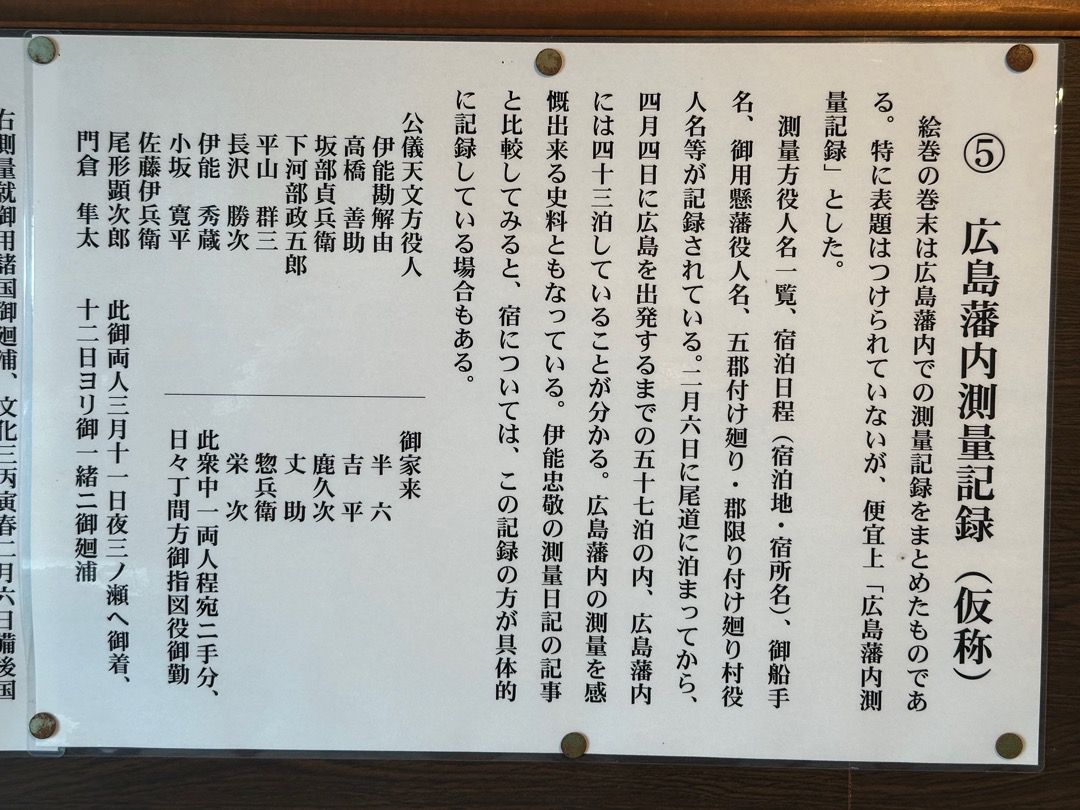 ⑤　広島藩内測量記録（仮称）
　絵巻の巻末は広島藩内での測量記録をまとめたものであ
る。特に表題はつけられていないが、便宜上「広島藩内測
量記録」とした。
　測量方役人名一覧、宿泊日程（宿泊地・宿所名）、御船手
名、御用懸藩役人名、五郡付け廻り・郡限り付け廻り村役
人名等が記録されている。二月六日に尾道に泊まってから、
四月四日に広島を出発するまでの五十七泊の内、広島藩内
には四十三泊していることが分かる。広島藩内の測量を感
慨出来る史料ともなっている。伊能忠敬の測量日記の記事
と比較してみると、宿については、この記録の方が具体的
に記録している場合もある。
公儀天文方役人
伊能勘解由
高橋　善助
坂部貞兵衛
下河部政五郎
平山　群三
長沢　勝次
伊能　秀蔵
小坂　寛平
佐藤伊兵衛
尾形顕次郎
門倉　隼太
此御両人三月十一日夜三ノ瀬へ御着、
十二日ヨリ御一緒ニ御廻浦
御家来
半　六
吉　平
鹿久次
丈　助
惣兵衛
栄　次
此衆中一両人程宛二手分、
日々丁間方御指図役御勤
右測量就御用諸国御廻浦、文化三丙寅春二月六日備後国